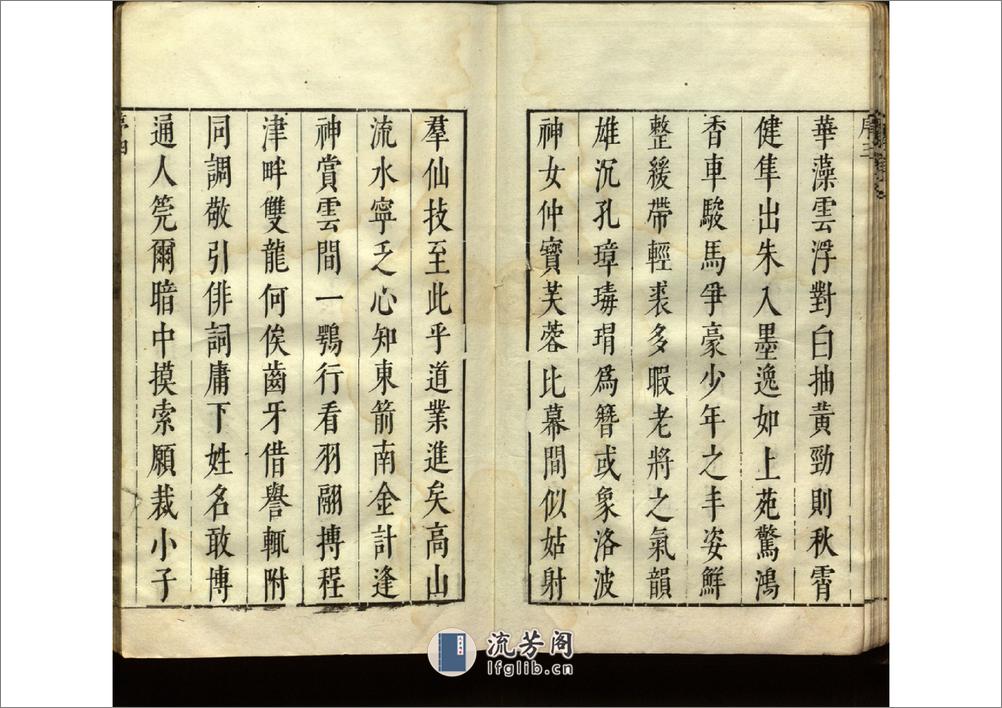 序三
華藻雲浮對白抽黄勁則秋霄
健隼出朱入墨逸如上苑驚鴻
香車駿馬爭豪少年之丰姿鮮
整緩帶輕裘多暇老將之氣韻
雄沉孔璋瑇瑁爲簪或象洛波
神女仲寶芙蓉比幕間似姑射
羣仙技至此乎道業進矣高山
流水寧乏心知東箭南金計逢
神賞雲間一鶚行看羽翮摶程
津畔雙龍何俟齒牙借譽輒附
同調敬引俳詞庸下姓名敢博
通人筦爾暗中摸索願裁小子
流芳阁
lfglib.cn